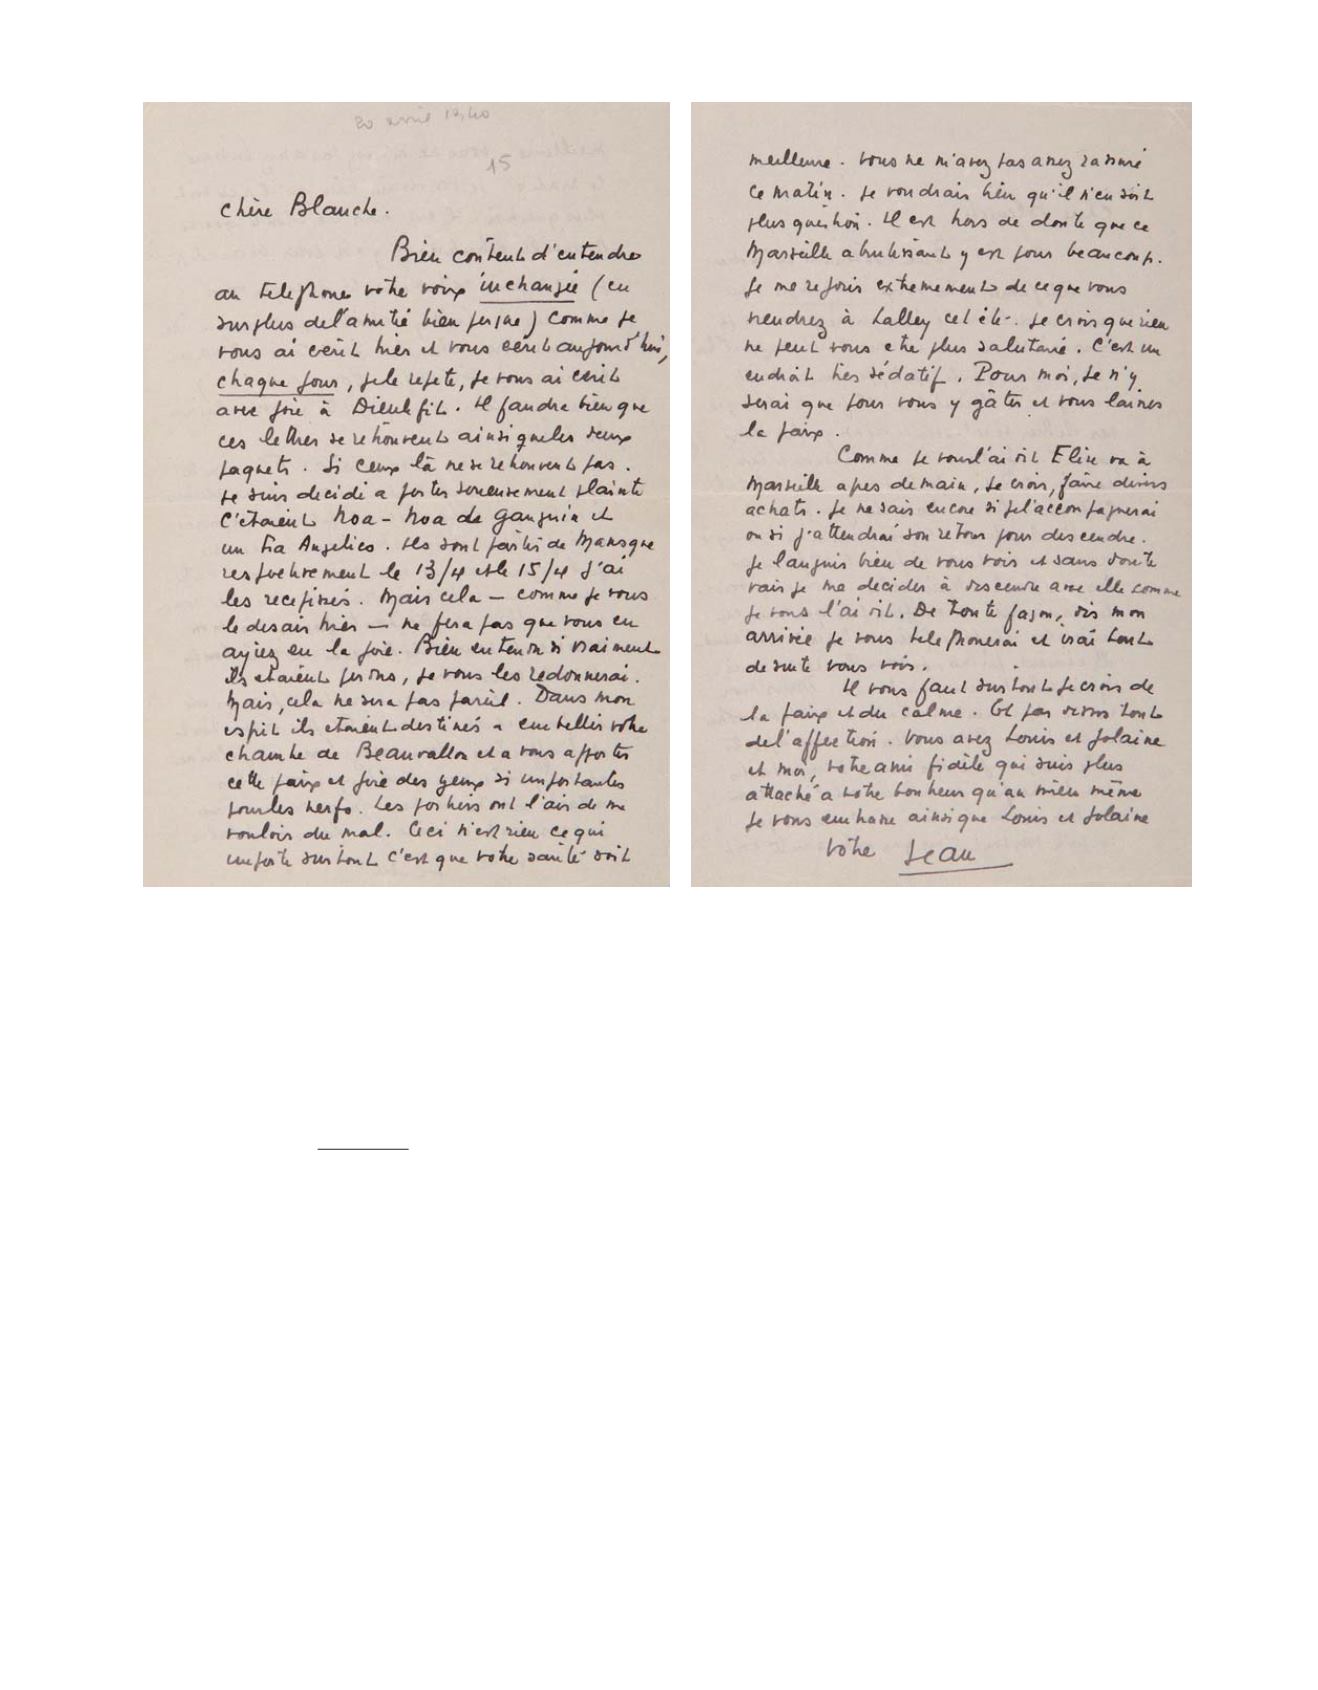 20 avril 1940
15
Chère Blanche.
Bien content d'entendre
au telephone votre voix inchangée (en
surplus de l'amitié bien jusque) comme je
vous ai écrit hier et vous écrit aujourd'hui,
chaque jour, je le repete, je vous ai écrit
avec joie à Dieulefit. Il faudra bien que
ces lettres se retrouvent ainsi que les deux
paquets. Si ceux là ne se retrouvent pas.
je suis decidé a porter serieusement plainte
C'etaient Noa-Noa de Gauguin et
un Fra Angelico. Ils sont partis de Manosque
respectivement le 13/4 et le 15/4 j'ai
les recepissés. Mais cela — comme je vous
le disais hier — ne fera pas que vous en
ayiez eu la joie. Bien entendu si vraiment
ils etaient perdus, je vous les redonnerai.
Mais, cela ne sera pas pareil. Dans mon
esprit ils etaient destinés a embellir votre
chambre de Beauvallon et a vous apporter
cette paix et joie des yeux si importantes
pour les nerfs. Les postiers ont l'air de me
vouloir du mal. Ceci n'est rien ce qui
importe surtout c'est que votre santé soit
meilleure. Vous ne m'avez pas assez rassuré
ce matin. Je voudrais bien qu'il n'en soit
plus question. Il est hors de doute que ce
Marseille abrutissant y est pour beaucoup.
Je me rejouis extremement de ce que vous
viendrez à Lalley cet été. Je crois que rien
ne peut vous etre plus salutaire. C'est un
endroit tres sédatif. Pour moi, je n'y
serai que pour vous y gâter et vous laisser
la paix.
Comme je vous l'ai dit Elise va à
Marseille apres demain, je crois, faire divers
achats. Je ne sais encore si je l'accompagnerai
ou si j'attendrai son retour pour descendre.
Je languis bien de vous voir et sans doute
vais je me decider à descendre avec elle comme
je vous l'ai dit. De toute façon, dis mon
arrivée je vous telephonerai et irai tout
de suite vous voir.
Il vous faut surtout je crois de
la paix et du calme. Et par dessus tout
de l'affection. Vous avez Louis et Jolaine
et moi, votre ami fidèle qui suis plus
attaché a votre bonheur qu'au mien même
Je vous embrasse ainsi que Louis et Jolaine
votre Jean